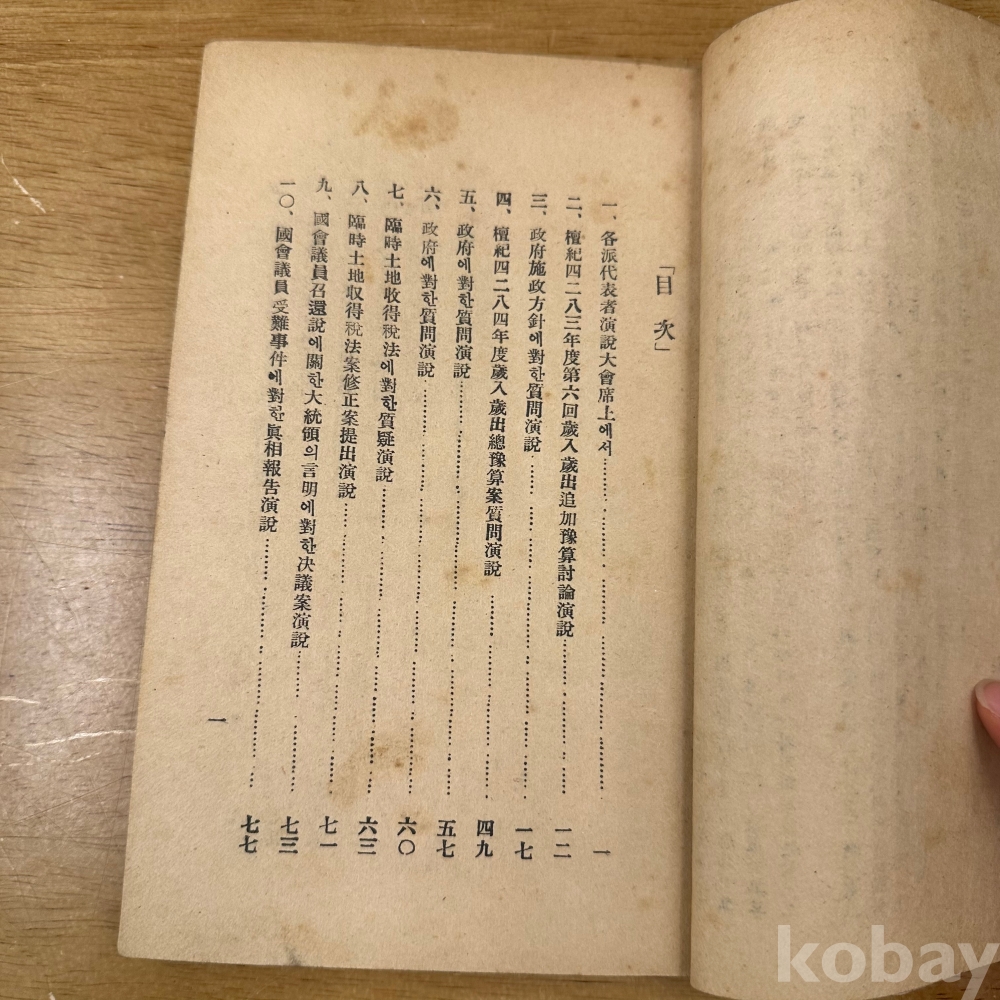 「目次」
一、各派代表者演說大會席上에서………一
二、檀紀四二八三年度第六回歲入歲出追加豫算討論演說………一二
三、政府施政方針에對한質問演說………一七
四、檀紀四二八四年度歲入歲出總豫算案質問演說………四九
五、政府에對한質問演說………五七
六、政府에對한質問演說………六〇
七、臨時土地收得稅法에對한質疑演說………六三
八、臨時土地収得稅法案修正案提出演說………七一
九、國會議員召還說에關한大統領의言明에對한決議案演說………七三
一〇、國會議員受難事件에對한眞相報告演說………七七
一
kobay